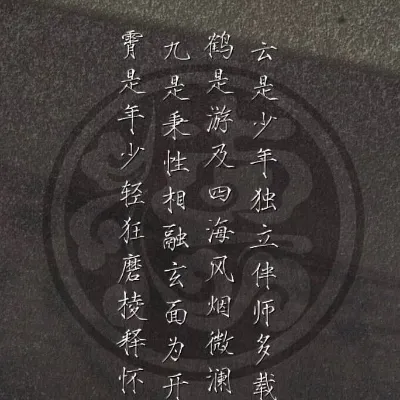 云是少年独立伴师多载
鹤是游及四海风烟微澜
九是秉性相融玄面为开
霄是年少轻狂磨棱释怀